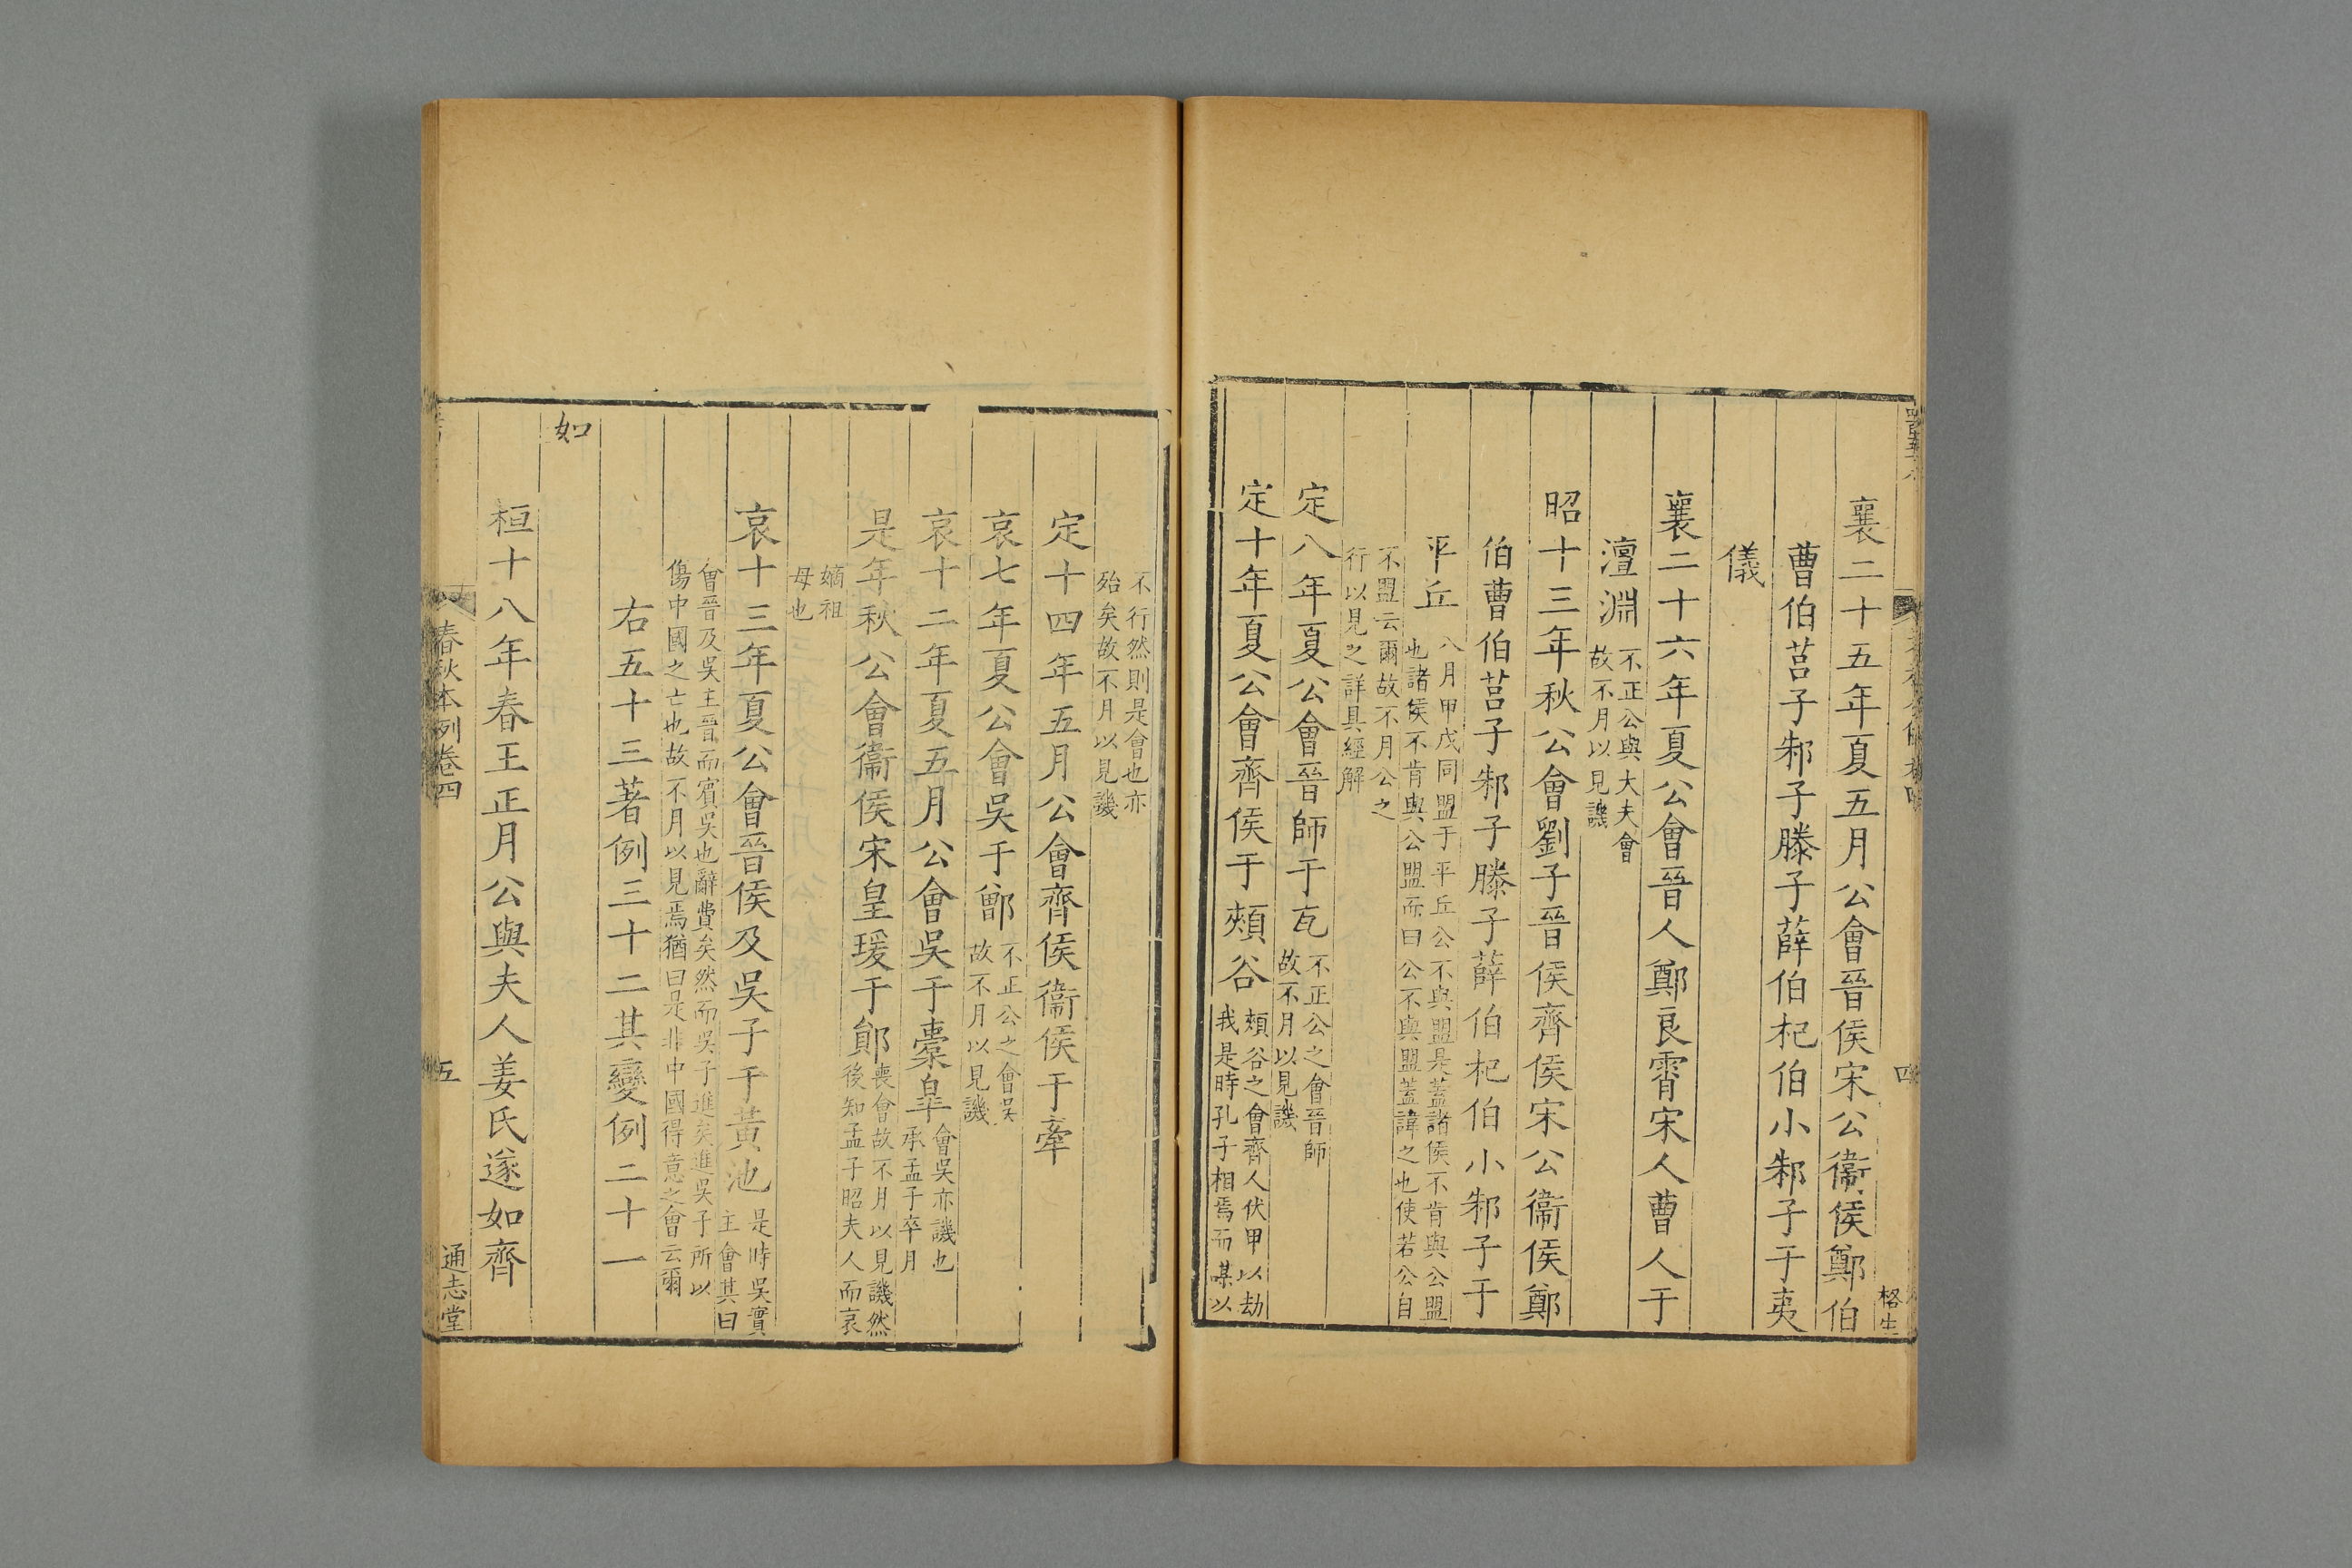 襄二十五年夏五月公會晉侯宋公衞侯鄭伯
曹伯莒子邾子滕子薛伯杞伯小邾子于夷
儀
襄二十六年夏公會晉人鄭良霄宋人曹人于
澶淵不正公與大夫會
故不月以見譏
昭十三年秋公會劉子晉侯齊侯宋公衞侯鄭
伯曹伯莒子邾子滕子薛伯杞伯小邾子于
平丘八月甲戌同盟于平丘公不與盟是蓋諸侯不肯與公盟
也諸侯不肯與公盟而曰公不與盟蓋諱之也使若公自
不盟云爾故不月公之
行以見之詳具經解
定八年夏公會晉師于瓦不正公之會晉師
故不月以見譏
定十年夏公會齊侯于頰谷頰谷之會齊人伏甲以劫
我是時孔子相焉而謀以
不行然則是會也亦
殆矣故不月以見譏
定十四年五月公會齊侯衞侯于牽
哀七年夏公會吳于鄫不正公之會吳
故不月以見譏
哀十二年夏五月公會吳于橐皐會吳亦譏也
承孟子卒月
是年秋公會衞侯宋皇瑗于鄖喪會故不月以見譏然
後知孟子昭夫人而哀
嫡祖
母也
哀十三年夏公會晉侯及吳子于黃池是時吳實
主會其曰
會晉及吳主晉而賓吳也辭費矣然而吳子進矣進吳子所以
傷中國之亡也故不月以見焉猶曰是非中國得意之會云爾
右五十三著例三十二其變例二十一
如
桓十八年春王正月公與夫人姜氏遂如齊
春秋本例卷四
五
通志堂
四
格生